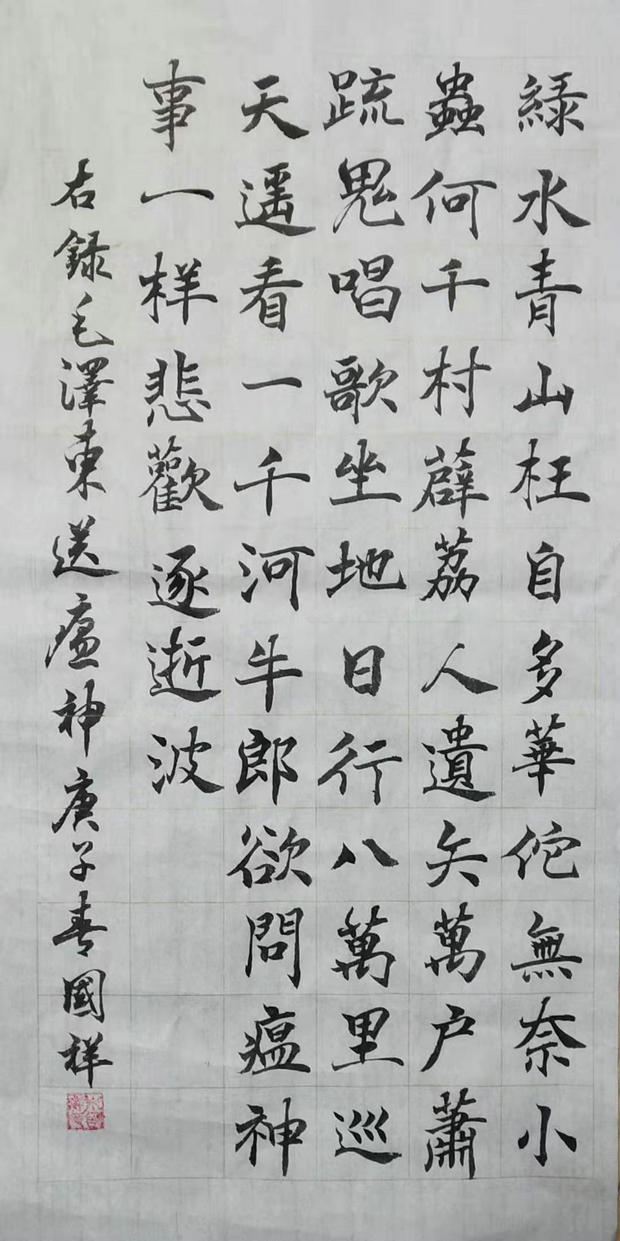 綠水青山枉自多華佗無奈小
蟲何千村薜荔人遺矢萬户蕭
疏鬼唱歌坐地日行八萬里巡
天遥看一千河牛郎欲問瘟神
事一樣悲歡逐逝波
右録毛澤東送瘟神庚子春國祥